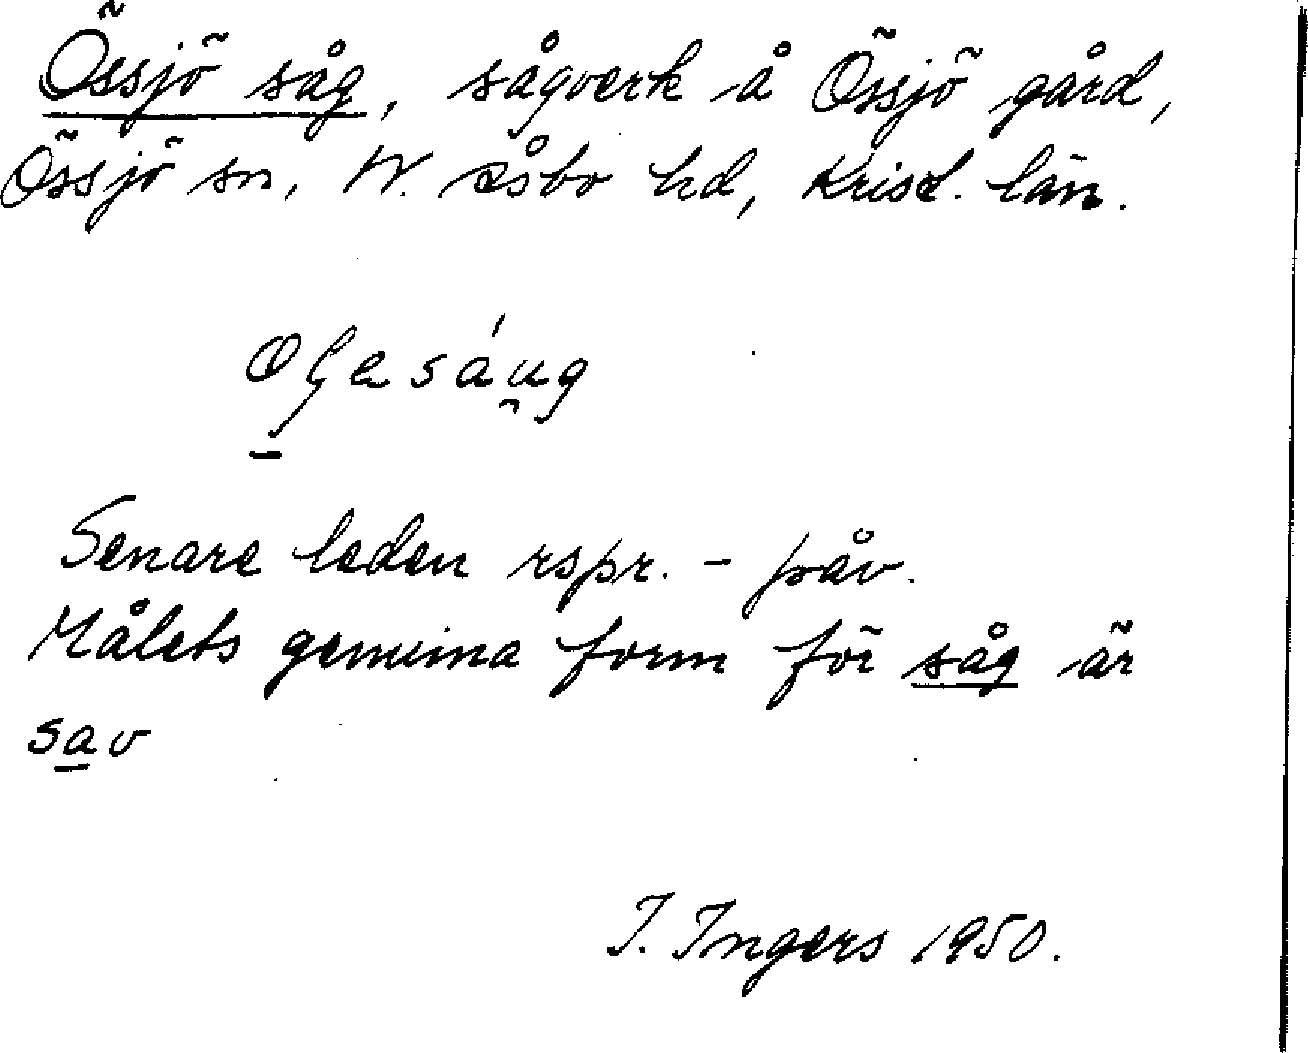 Össjö såg, sågverk å Össjö gård,
Össjö sn, N. Åsbo hd, Krist. län.
Senare leden rspr. - påv.
Målets genuina form för såg är
sav
I. Ingers 1950.